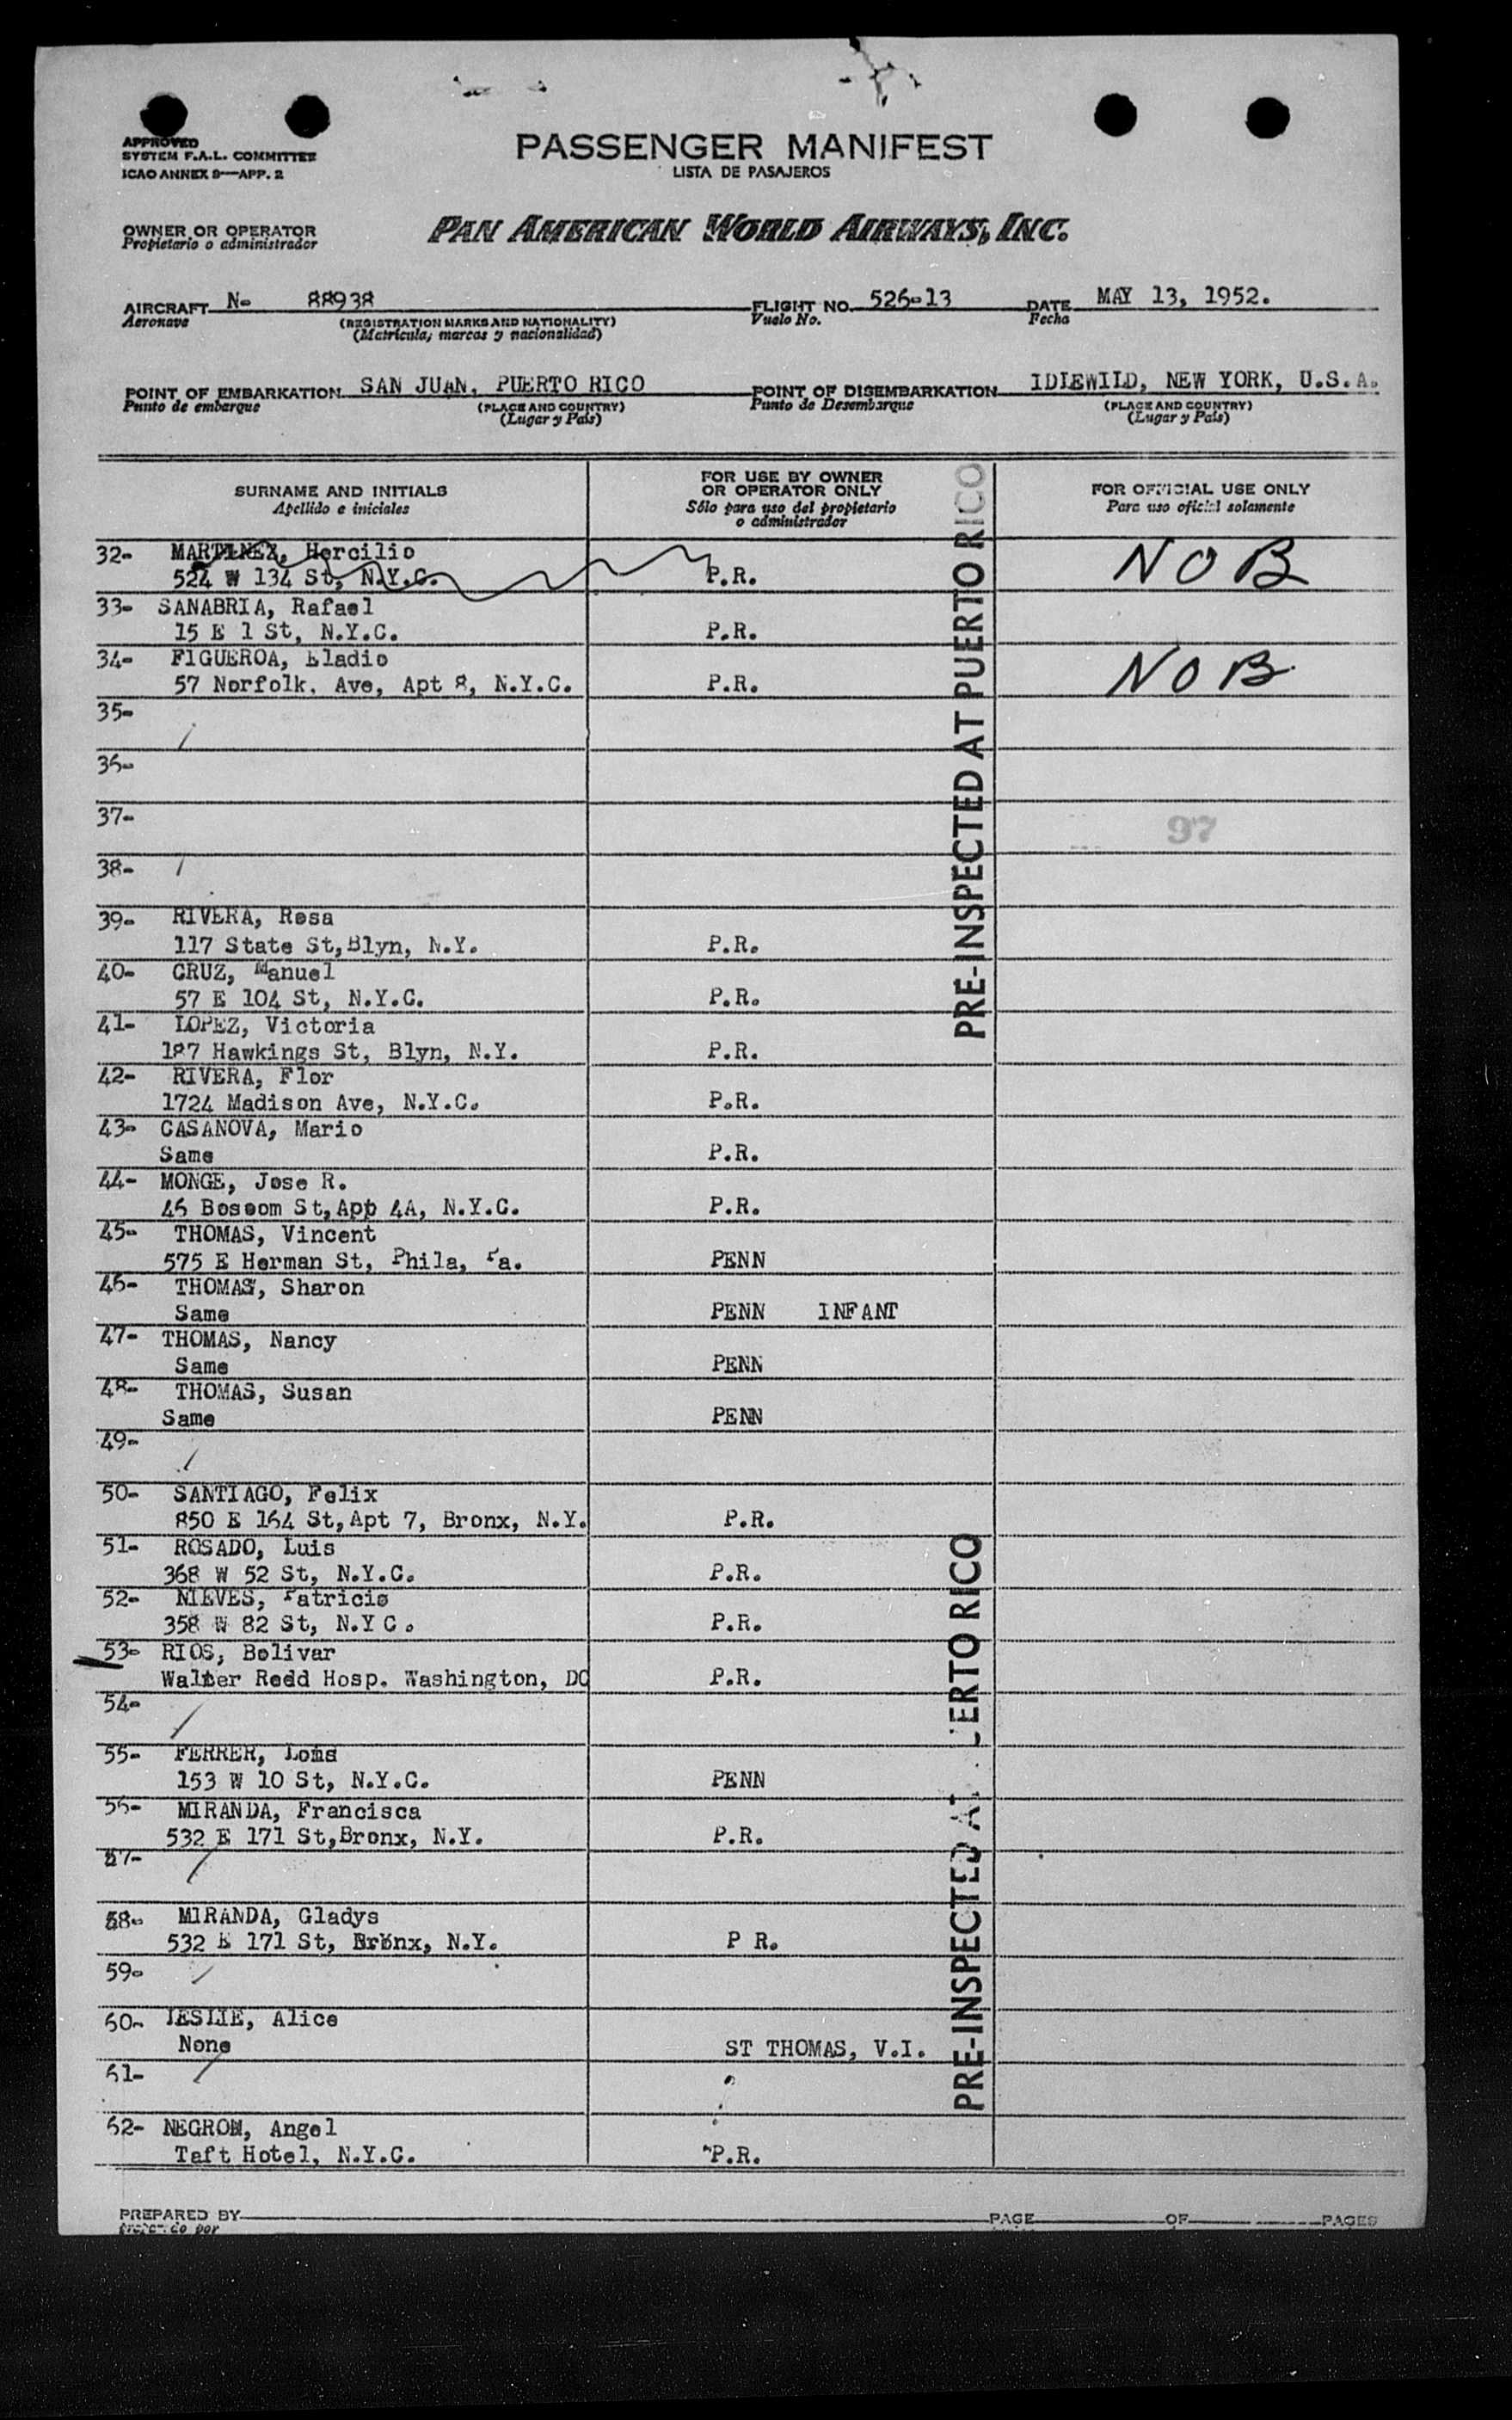 APPROVED
SYSTEM F.A.L. COMMITTEE
ICAO ANNEX 9—APP. 2
PASSENGER MANIFEST
LISTA DE PASAJEROS
OWNER OR OPERATOR
Propietario o administrador
PAN AMERICAN WORLD AIRWAYS, INC.
AIRCRAFT N- 88938 FLIGHT NO. 526-13 DATE MAY 13, 1952.
Aeronave (REGISTRATION MARKS AND NATIONALITY) Vuelo No. Fecha
(Matrícula, marcas y nacionalidad)
POINT OF EMBARKATION SAN JUAN, PUERTO RICO POINT OF DISEMBARKATION IDLEWILD, NEW YORK, U.S.A.
Punto de embarque (PLACE AND COUNTRY) Punto de Desembarque (PLACE AND COUNTRY)
(Lugar y País) (Lugar y País)
SURNAME AND INITIALS
Apellido e iniciales
FOR USE BY OWNER
OR OPERATOR ONLY
Sólo para uso del propietario
o administrador
FOR OFFICIAL USE ONLY
Para uso oficial solamente
32- MARTINEZ, Hercilio
524 W 134 St, N.Y.C. P.R. NOB
33- SANABRIA, Rafael
15 E 1 St, N.Y.C. P.R.
34- FIGUEROA, Eladio
57 Norfolk. Ave, Apt 8, N.Y.C. P.R. NOB
35-
36-
37-
97
38-
39- RIVERA, Rosa
117 State St,Blyn, N.Y. P.R.
40- CRUZ, Manuel
57 E 104 St, N.Y.C. P.R.
41- LOPEZ, Victoria
187 Hawkings St, Blyn, N.Y. P.R.
42- RIVERA, Flor
1724 Madison Ave, N.Y.C. P.R.
43- CASANOVA, Mario
Same P.R.
44- MONGE, Jose R.
46 Bossom St,App 4A, N.Y.C. P.R.
45- THOMAS, Vincent
575 E Herman St, Phila, Pa. PENN
46- THOMAS, Sharon
Same PENN INFANT
47- THOMAS, Nancy
Same PENN
48- THOMAS, Susan
Same PENN
49-
50- SANTIAGO, Felix
850 E 164 St,Apt 7, Bronx, N.Y. P.R.
51- ROSADO, Luis
368 W 52 St, N.Y.C. P.R.
52- NIEVES, Patricio
358 W 82 St, N.Y C. P.R.
53- RIOS, Bolivar
Walter Redd Hosp. Washington, DC P.R.
54-
55- FERRER,
153 W 10 St, N.Y.C. PENN
56- MIRANDA, Francisca
532 E 171 St,Bronx, N.Y. P.R.
57-
58- MIRANDA, Gladys
532 E 171 St, Bronx, N.Y. P R.
59-
60- LESLIE, Alice
None ST THOMAS, V.I.
61-
62- NEGRON, Angel
Taft Hotel, N.Y.C. P.R.
PRE-INSPECTED AT PUERTO RICO
PRE-INSPECTED AT PUERTO RICO
PREPARED BY PAGE OF PAGES